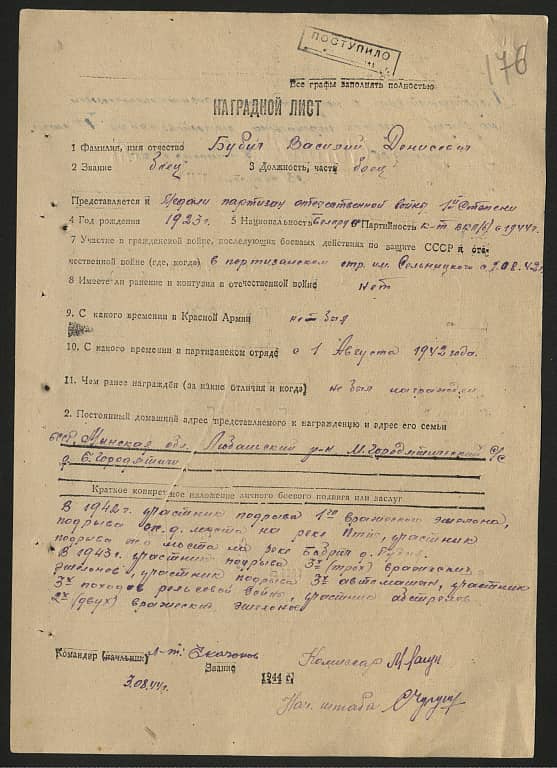 ПОСТУПИЛО
176
Все графы заполнять полностью
НАГРАДНОЙ ЛИСТ
1 Фамилия, имя отчество Бубич Василий Денисович
2 Звание боец 3 Должность, часть боец
Представляется к Медали партизан отечественной войны 1ой Степени
4 Год рождения 1923г. 5 Национальность Белорус Партийность к-т ВКП(б) с 1944г.
7 Участие в гражданской войне, последующих боевых действиях по защите СССР и оте-
чественной войне (где, когда) в партизанском отр. им. с 1.08.42г.
8 Имеет ли ранение и контузия в отечественной войне нет
9. С какого времени в Красной Армии не был
10. С какого времени в партизанском отряде с 1 Августа 1942 года.
11. Чем ранее награждён (за какие отличия и когда) не был награжден
2. Постоянный домашний адрес представляемого к награждению и адрес его семьи
БССР Минская обл. Любанский р-н М. Городятичский с/с
д. Б. Городятичи
Краткое конкретное изложение личного боевого подвига или заслуг
В 1942г. участник подрыва 1го вражеского эшелона,
подрыва ж.д. моста на реке Птич, участник
подрыва моста на реке д.
В 1943г. участник подрыва 3х (трех) вражеских
эшелонов, участник подрыва 3х автомашин, участник
3х походов рельсовой войны, участник обстрелов
2х (двух) вражеских эшелонов
Командир (начальник) л-т.
Звание
Комиссар
3.08.44г.
1944 г.
Нач. штаба